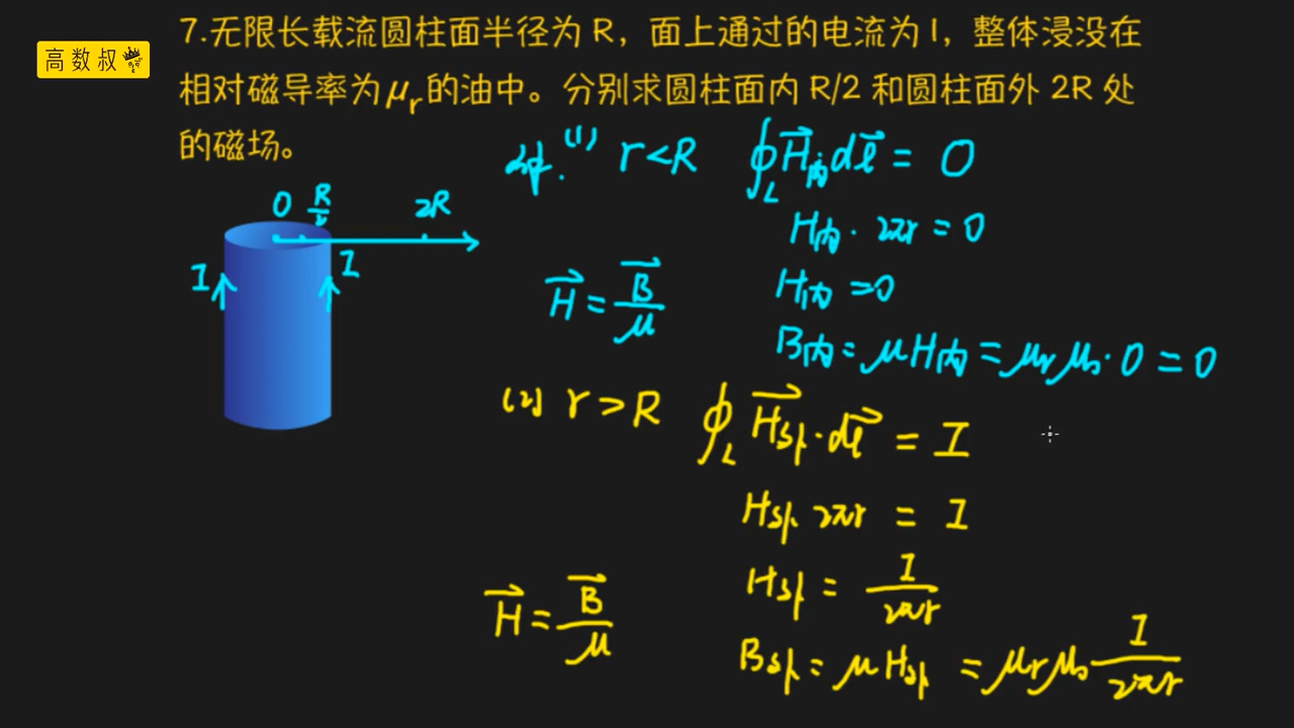 高数叔
7.无限长载流圆柱面半径为 R，面上通过的电流为 I，整体浸没在
相对磁导率为 μr 的油中。分别求圆柱面内 R/2 和圆柱面外 2R 处
的磁场。
解. (1) r<R ∮L H⃗内 dl⃗ = 0
0 R/2 2R
H内 · 2πr = 0
I I
H⃗ = B⃗/μ
H内 = 0
B内 = μH内 = μrμ0 · 0 = 0
(2) r > R ∮L H⃗外 · dl⃗ = I
H外 2πr = I
H外 = I/2πr
H⃗ = B⃗/μ
B外 = μH外 = μrμ0 I/2πr